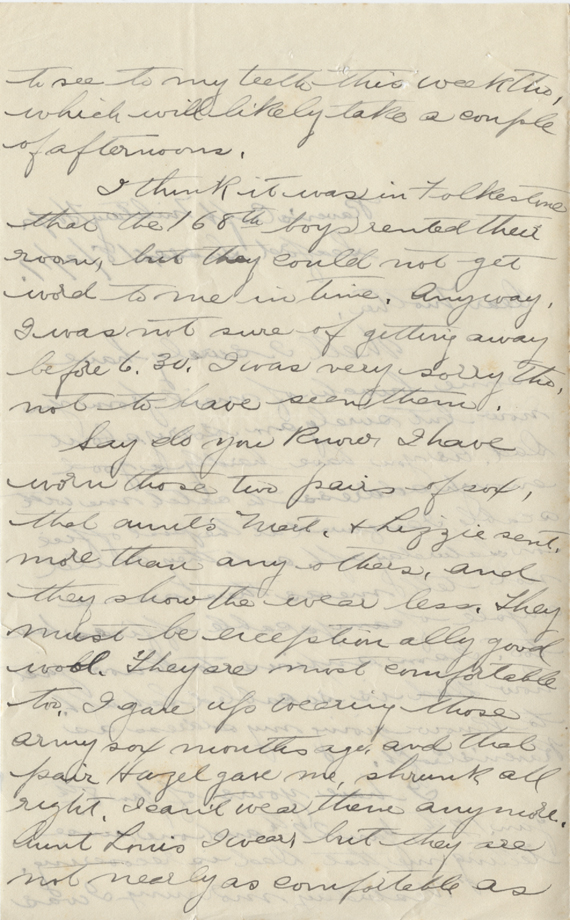 to see to my teeth this week tho,
which will likely take a couple
of afternoons.
I think it was in Folkestone
that the 168th boys rented their
room, but they could not get
word to me in time. Anyway,
I was not sure of getting away
before 6.30. I was very sorry tho,
not to have seen them.
Say do you know I have
worn those two pairs of sox,
that aunts Matt. & Lizzie sent.
more than any others, and
they show the wear less. They
must be exception ally good
wool. They are most comfortable
too. I gave up wearing those
army sox months ago. and that
pair Hazel gave me, shrunk all
right. I can't wear them anymore.
Aunt Louis I wear, but they are
not nearly as comfortable as